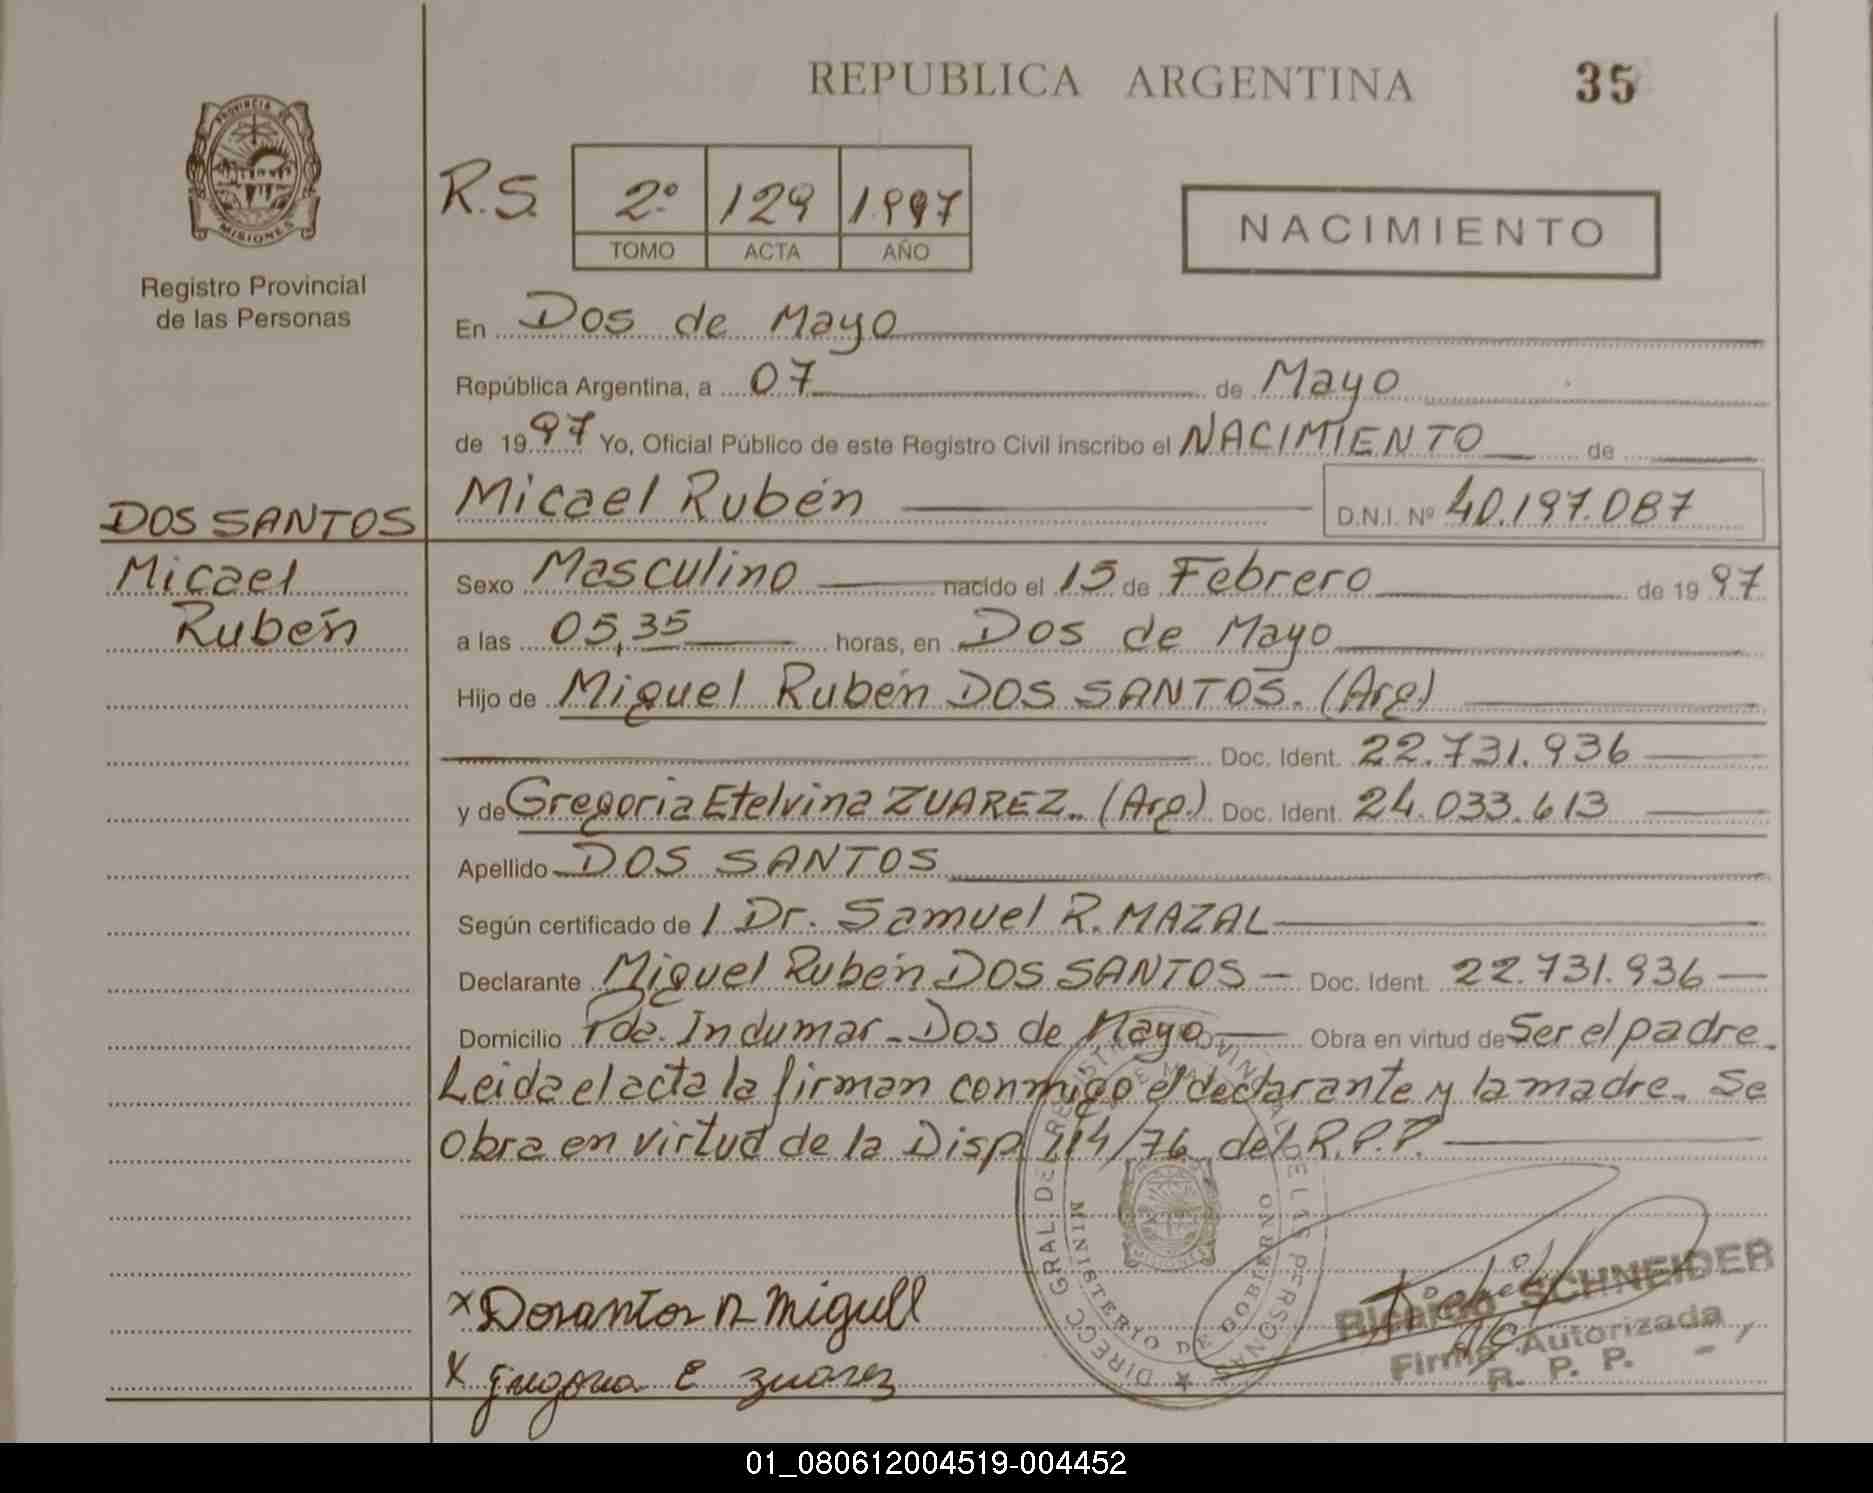 REPUBLICA ARGENTINA 35
PROVINCIA DE
MISIONES
Registro Provincial
de las Personas
R.S. 2º 129 1997
TOMO ACTA AÑO
NACIMIENTO
En Dos de Mayo
República Argentina, a 07 de Mayo
de 1997 Yo, Oficial Público de este Registro Civil inscribo el NACIMIENTO de
DOS SANTOS Micael Rubén D.N.I. Nº 40.197.087
Micael Sexo Masculino nacido el 15 de Febrero de 1997
Rubén a las 05,35 horas, en Dos de Mayo
Hijo de Miguel Rubén DOS SANTOS. (Arg)
Doc. Ident. 22.731.936
y de Gregoria Etelvina ZUAREZ.. (Arg.) Doc. Ident. 24.033.613
Apellido DOS SANTOS
Según certificado de / Dr. Samuel R. MAZAL
Declarante Miguel Rubén DOS SANTOS - Doc. Ident. 22.731.936
Domicilio Pda. Indumar - Dos de Mayo Obra en virtud de Ser el padre.
Leida el acta la firman conmigo el declarante y la madre. Se
obra en virtud de la Disp. 114/76 del R.P.P.
DIRECC. GRAL. DEL REGISTRO PROVINCIAL DE LAS PERSONAS
MINISTERIO DE GOBIERNO
x Dosantos R Miguel
x gregoria E zuarez
Ricardo SCHNEIDER
Firma Autorizada
R. P. P.
01_080612004519-004452